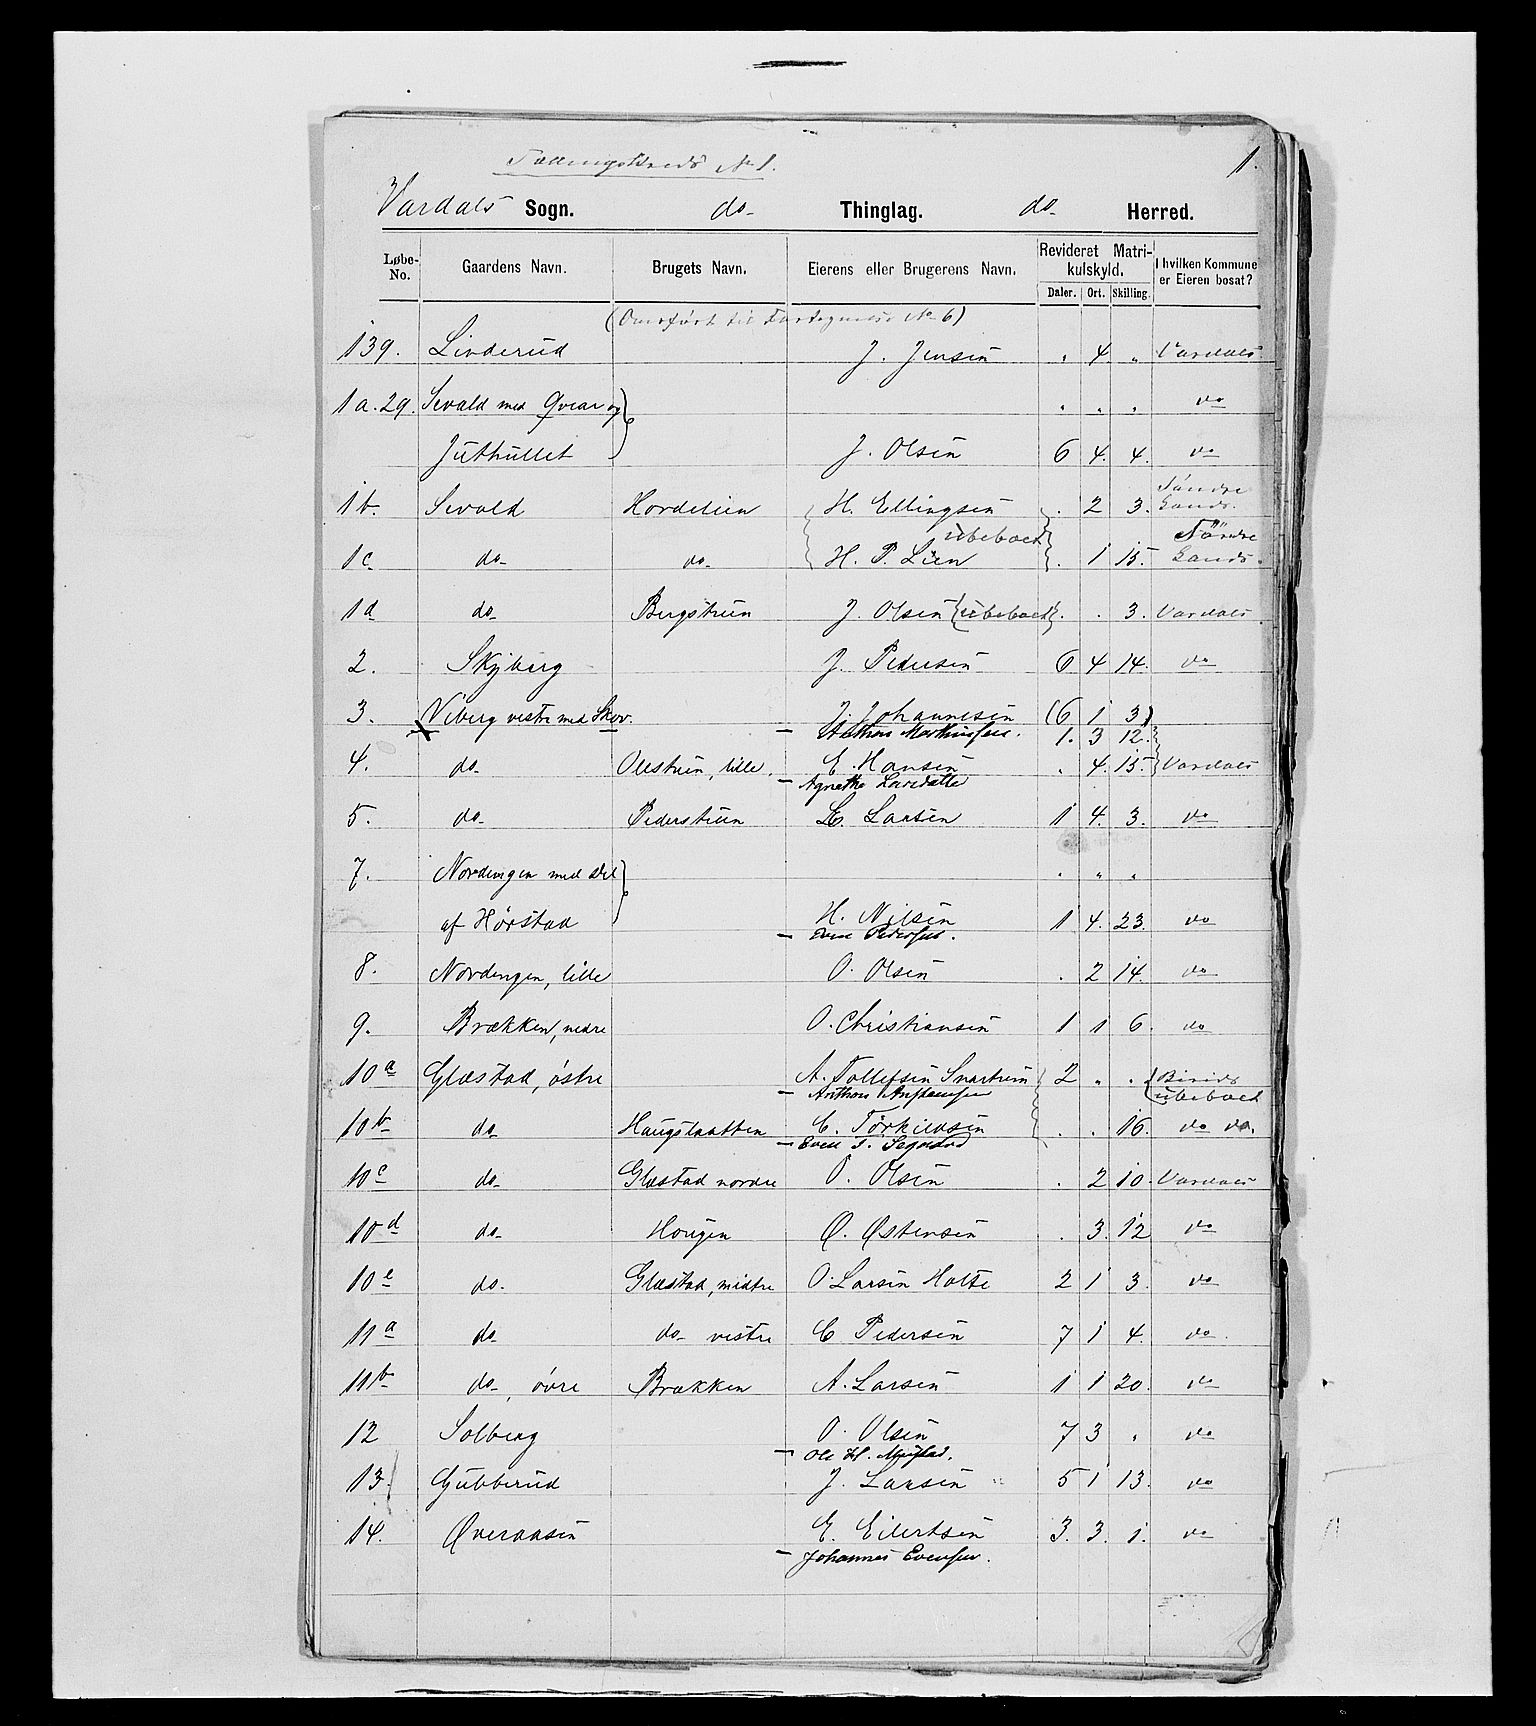 Tællingskreds No 1.
1.
Vardals Sogn. do Thinglag. do Herred.
Løbe-No. Gaardens Navn. Brugets Navn. Eierens eller Brugerens Navn. Revideret Matrikulskyld. Daler. Ort. Skilling. I hvilken Kommune er Eieren bosat?
(Overført til Fortegnelse No 6)
139. Linderud J. Jensen . 4 " Vardals
1a.29. Sevald med Qvear og . . . do
Juthullet J. Olsen 6 4. 4. do
1b. Sevald Hordelien H. Ellingsen . 2 3. Søndre Lands.
ubeboet
1c do do H. P. Lien . 1 15. Søndre Lands.
1d do Bergsteien J. Olsen {ubeboet} . . 3. Vardals
2. Skjberg J. Pedersen 6 4 14. do
3. Viberg vestre med Skov. J. Johannesen (6 1 3)
x — Anthon Marthinsen. 1. 3 12.
4. do Olestuen, lille. E. Hansen . 4. 15. Vardals
— Agnethe Larsdatter
5. do Pederstuen L. Larsen 1 4. 3. do
7. Nordengen med Del . " "
af Hørstad H. Nilsen 1 4. 23. do
— Even Pedersen.
8. Nordengen, lille O. Olsen . 2 14. do
9. Brækken, nedre O. Christiansen 1 1 6. do
10a Glæstad, östre A. Tollefsen Svartrum 2 " . Birids
— Anthon ubeboet
10b do Haugslaatten C. Torkildsen . . 16. do do.
— Even T. Segestad
10c do Glæstad nordre O. Olsen . 2 10. Vardals
10d do Hougen Ø. Østensen . 3. 12 do
10e do. Glæstad, midtre O. Larsen Holte 2 1 3. do
11a do do vestre C. Pedersen 7 1 4. do.
11b do, övre Brækken A. Larsen 1 1 20. do
12 Solberg O. Olsen 7 3 . do
— Ole H.
13. Gubberud J. Larsen 5 1 13. do
14. Øveraasen E. Eilertsen 3. 3. 1. do
— Johannes Evensen.